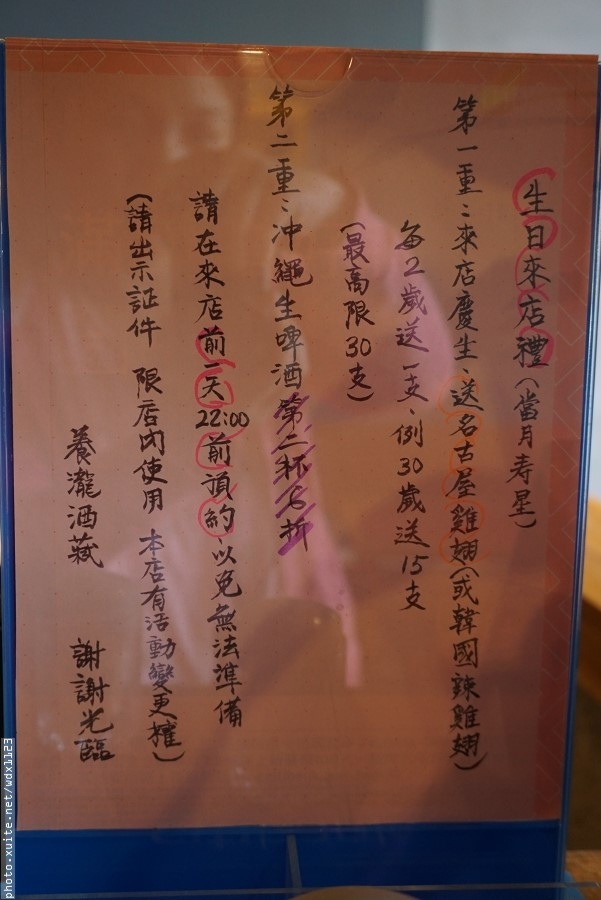 生日來店禮(當月寿星)
第一重:來店慶生、送名古屋雞翅(或韓國辣雞翅)
每2歲送一支、例30歲送15支
(最高限30支)
第二重:沖繩生啤酒第二杯6折
請在來店前一天22:00前預約、以免無法準備
(請出示証件 限店內使用 本店有活動變更權)
養瀧酒藏 謝謝光臨
photo.xuite.net/wdx1123